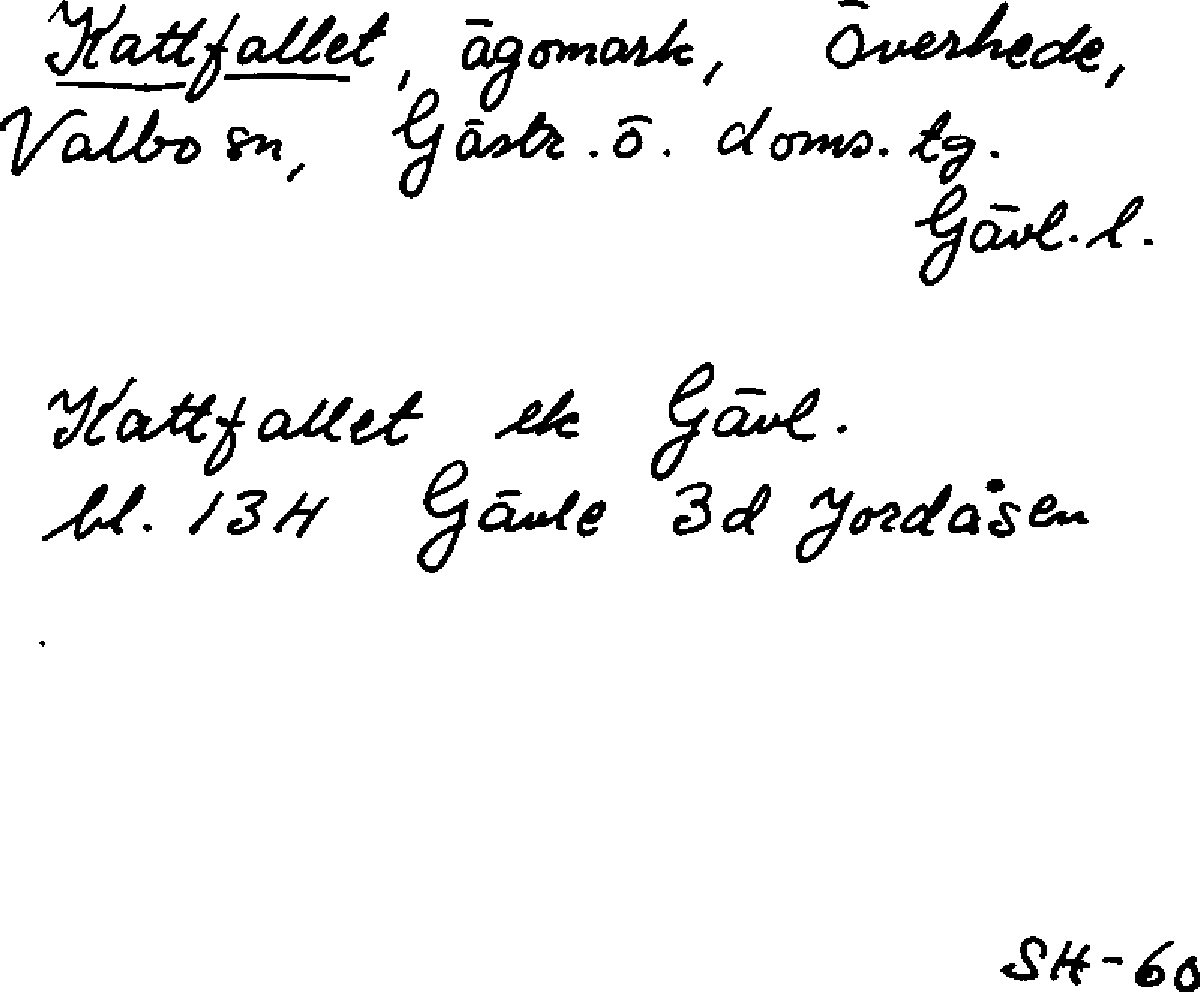 Kattfallet, ägomark, Överhede,
Valbo sn, Gästr. ö. doms. tg.
Gävl. l.
Kattfallet ek Gävl.
bl. 13H Gävle 3d Jordåsen
SH-60